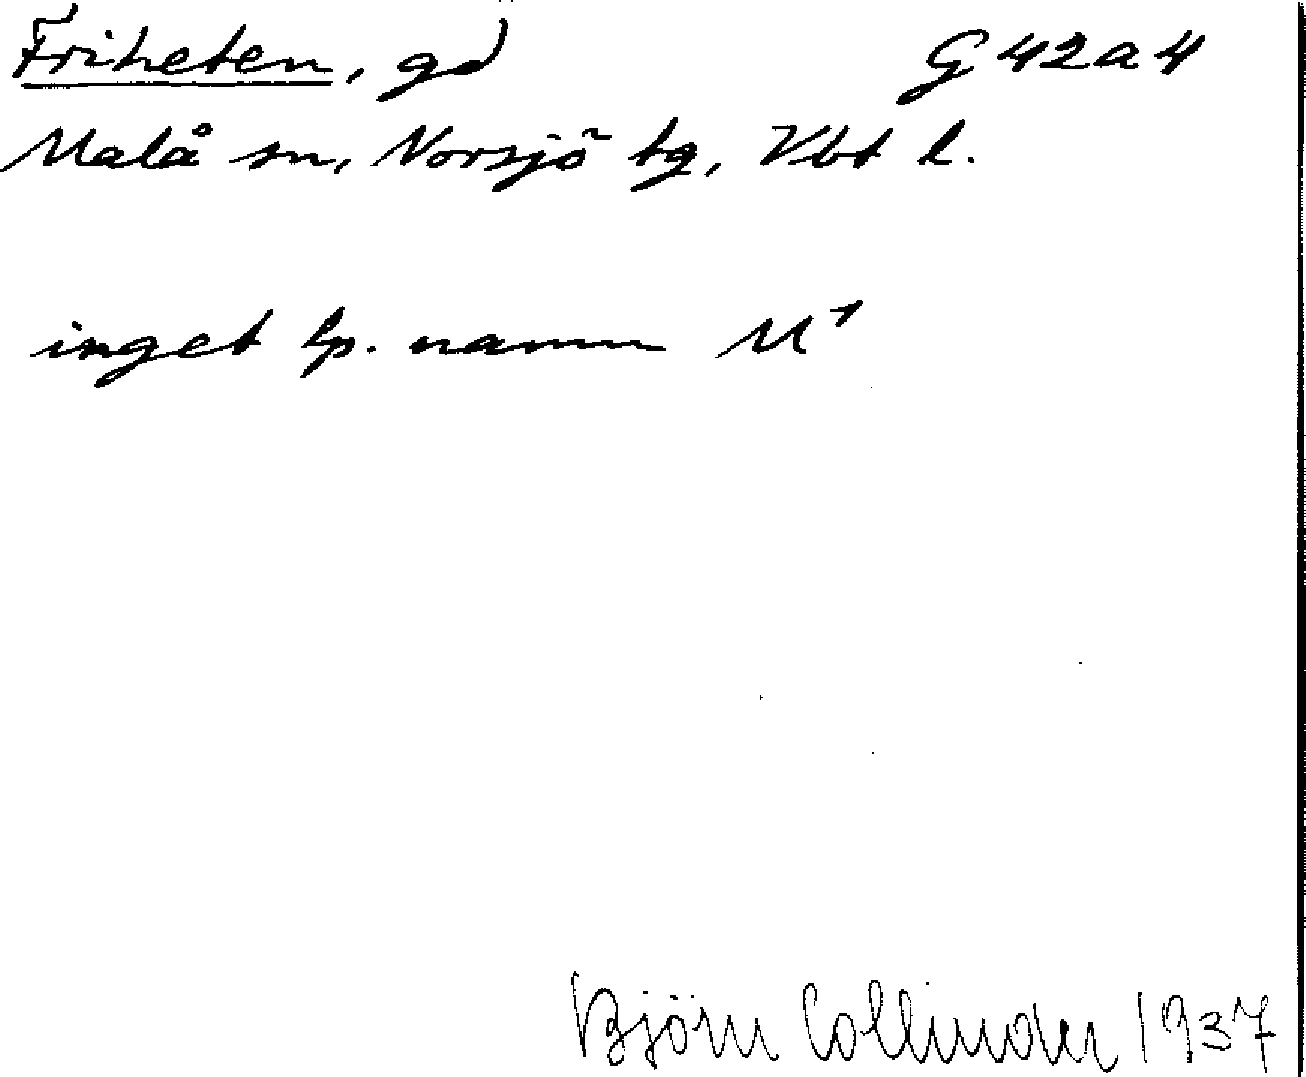 Friheten, gd G42a4
Malå sn, Norsjö tg, Vbt l.
inget lp. namn M¹
Björn Collinder 1937